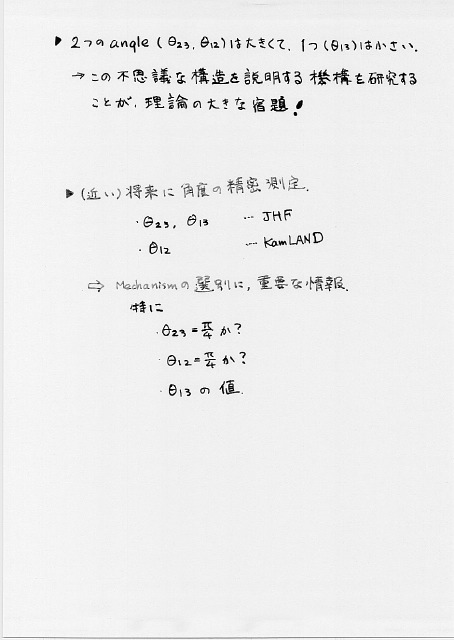 ▶ 2つのangle (θ23, θ12)は大きくて、1つ(θ13)は小さい.
→ この不思議な構造を説明する機構を研究する
ことが, 理論の大きな宿題!
▶ (近い)将来に角度の精密測定.
・θ23, θ13 … JHF
・θ12 … KamLAND
⇒ Mechanismの選別に, 重要な情報.
特に
・θ23=π/4か?
・θ12=π/4か?
・θ13の値.